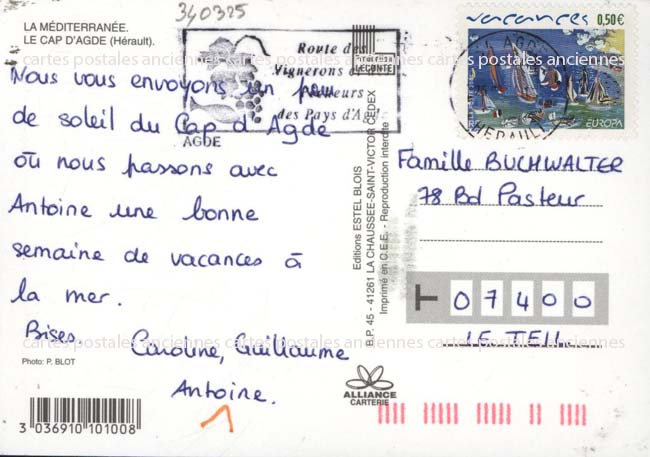 340325
LA MÉDITERRANÉE.
LE CAP D'AGDE (Hérault).
Route des
Vignerons et
Pêcheurs
des Pays d'Agde
AGDE
LECONTE
vacances 0,50€
AGDE
HERAULT
EUROPA
cartes postales anciennes cartes postales anciennes cartes postales anciennes
Nous vous envoyons un peu
de soleil du Cap d'Agde
où nous passons avec
Antoine une bonne
semaine de vacances à
la mer.
Bises.
Caroline, Guillaume
Antoine.
Photo: P. BLOT
3 036910 101008
Editions ESTEL BLOIS
B.P. 45 - 41261 LA CHAUSSEE-SAINT-VICTOR CEDEX
Imprimé en C.E.E. - Reproduction interdite
Famille BUCHWALTER
78 Bd Pasteur
T 07400
LE TEIL
cartes postales anciennes cartes postales anciennes cartes postales anciennes
ALLIANCE
CARTERIE